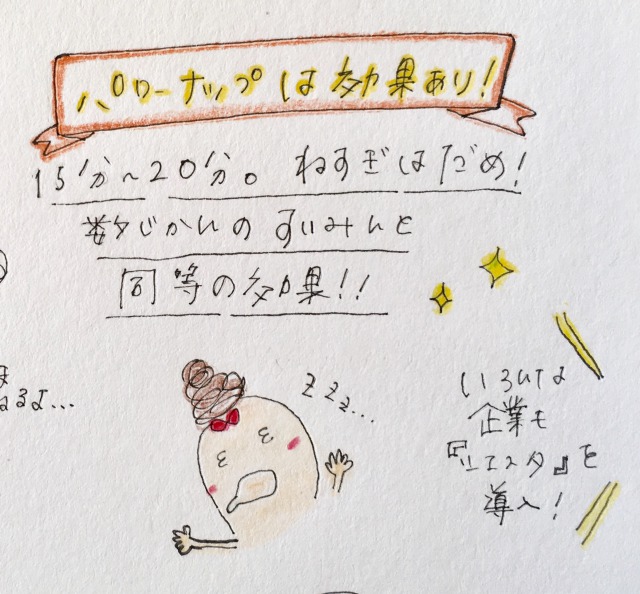 パワーナップは効果あり!
15分~20分。ねすぎはだめ!
数じかんのすいみんと
同等の効果!!
zzz...
いろんな
企業も
『シエスタ』を
導入!